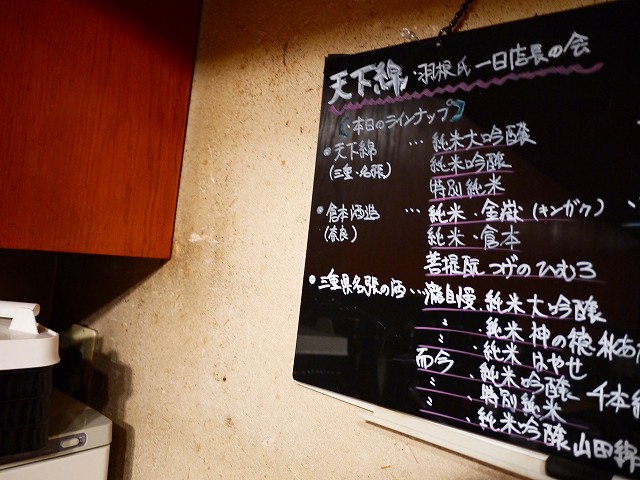 天下錦 羽根氏 一日店長の会
本日のラインナップ
• 天下錦 … 純米大吟醸
(三重・名張) 純米吟醸
特別純米
• 倉本酒造 … 純米・金嶽 (キンガク)
(奈良) 純米・倉本
菩提酛 つげのひむろ
• 三重県名張の酒 … 瀧自慢 純米大吟醸
〃 純米 神の穂
〃 純米 はやせ
而今 純米吟醸 千本錦
〃 特別純米
〃 純米吟醸 山田錦